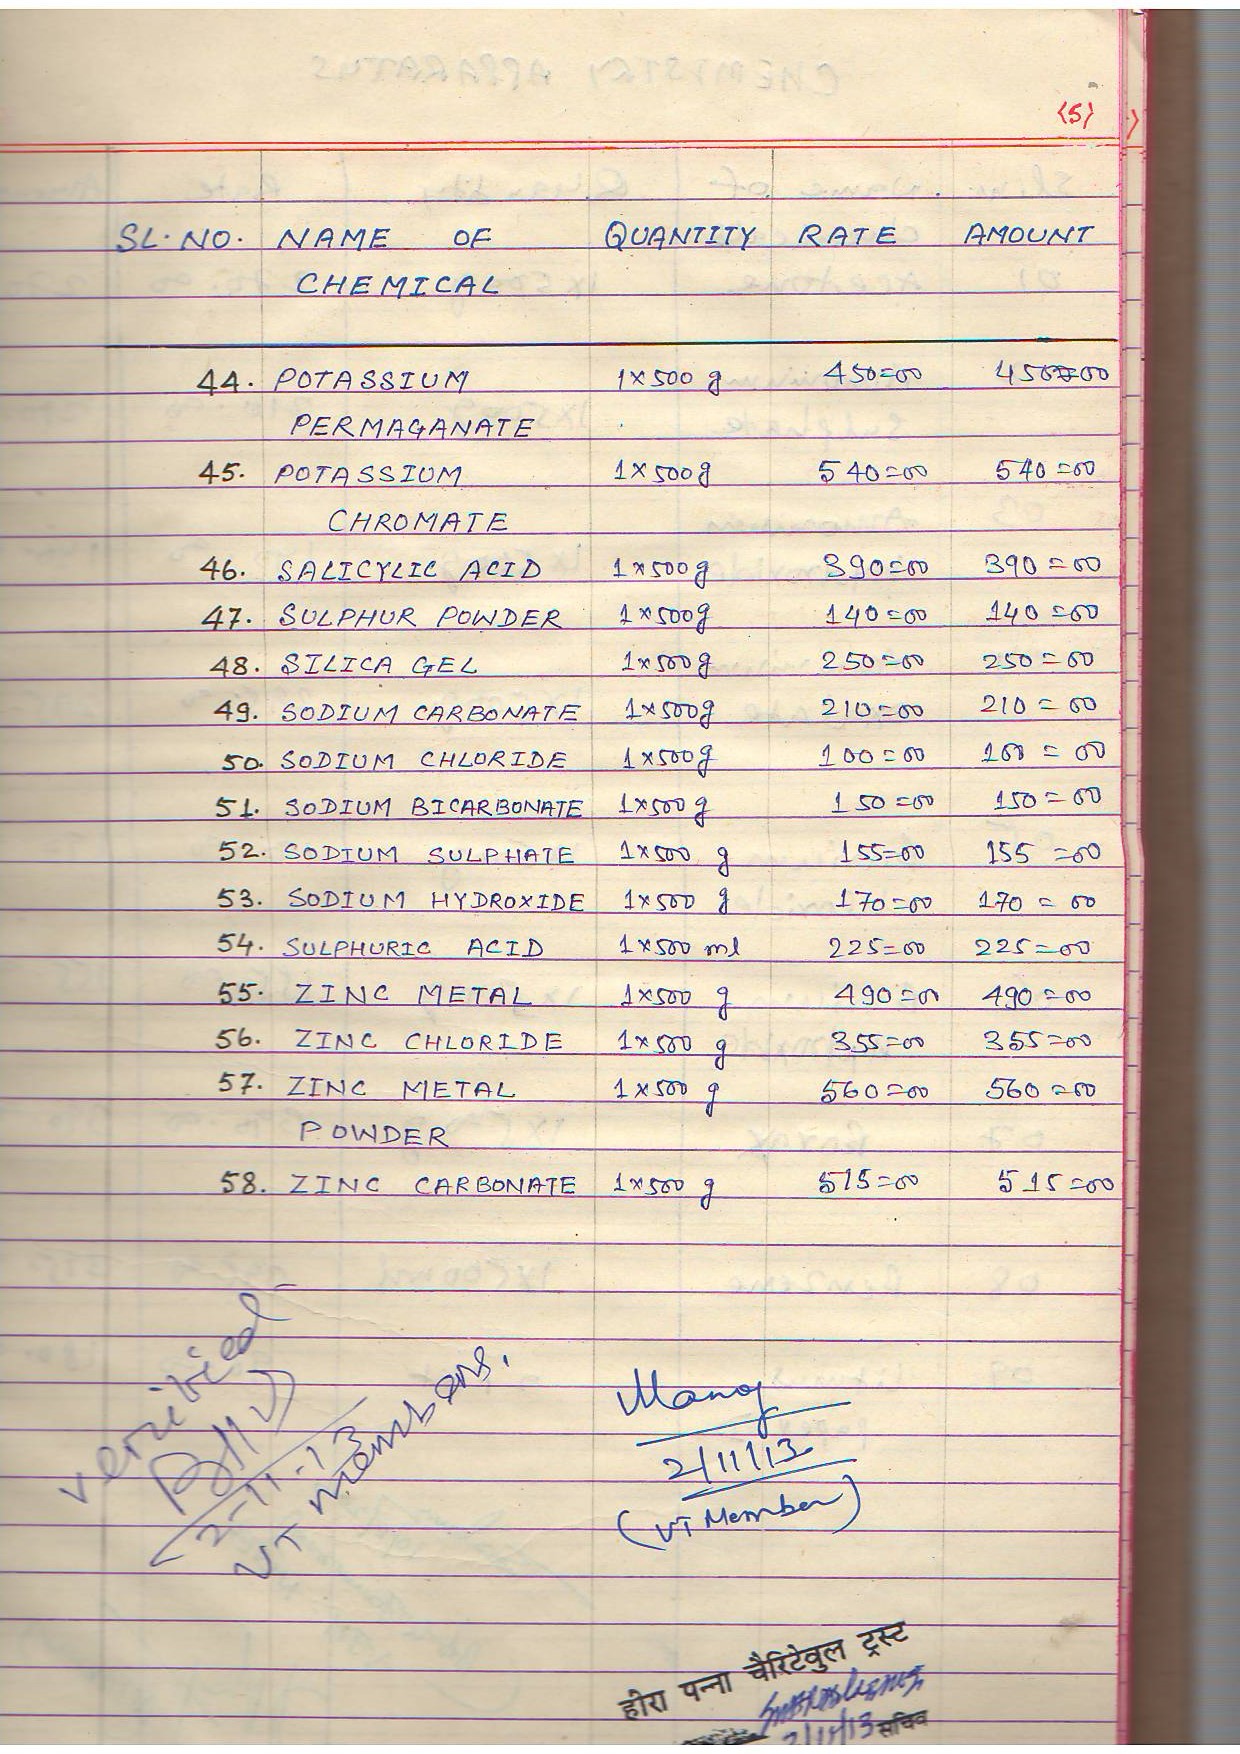 (5)
SL. NO. NAME OF QUANTITY RATE AMOUNT
CHEMICAL
44. POTASSIUM 1×500 g 450=00 450=00
PERMAGANATE
45. POTASSIUM 1×500g 540=00 540=00
CHROMATE
46. SALICYLIC ACID 1×500g 390=00 390=00
47. SULPHUR POWDER 1×500g 140=00 140=00
48. SILICA GEL 1×500g 250=00 250=00
49. SODIUM CARBONATE 1×500g 210=00 210=00
50. SODIUM CHLORIDE 1×500g 100=00 100=00
51. SODIUM BICARBONATE 1×500g 150=00 150=00
52. SODIUM SULPHATE 1×500 g 155=00 155=00
53. SODIUM HYDROXIDE 1×500 g 170=00 170=00
54. SULPHURIC ACID 1×500 ml 225=00 225=00
55. ZINC METAL 1×500 g 490=00 490=00
56. ZINC CHLORIDE 1×500 g 355=00 355=00
57. ZINC METAL 1×500 g 560=00 560=00
POWDER
58. ZINC CARBONATE 1×500 g 515=00 515=00
verified
2-11-13
VT members.
Manoj
2/11/13
(VT Member)
हीरा पन्ना चैरिटेवुल ट्रस्ट
2/11/13 सचिव